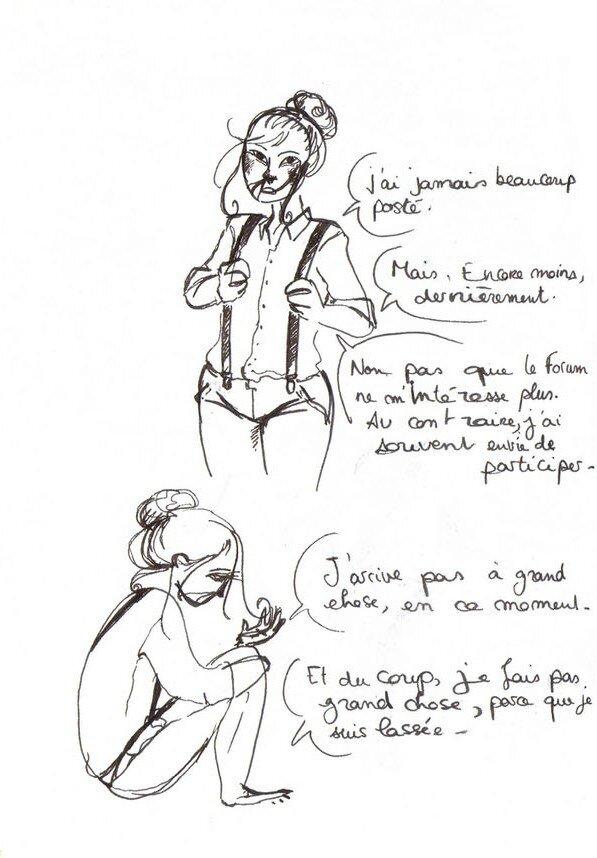 J'ai jamais beaucoup
posté.
Mais. Encore moins,
dernièrement.
Non pas que le Forum
ne m'intéresse plus.
Au contraire, j'ai
souvent envie de
participer-
J'arrive pas à grand
chose, en ce moment-
Et du coup, je fais pas
grand chose, parce que je
suis lassée-